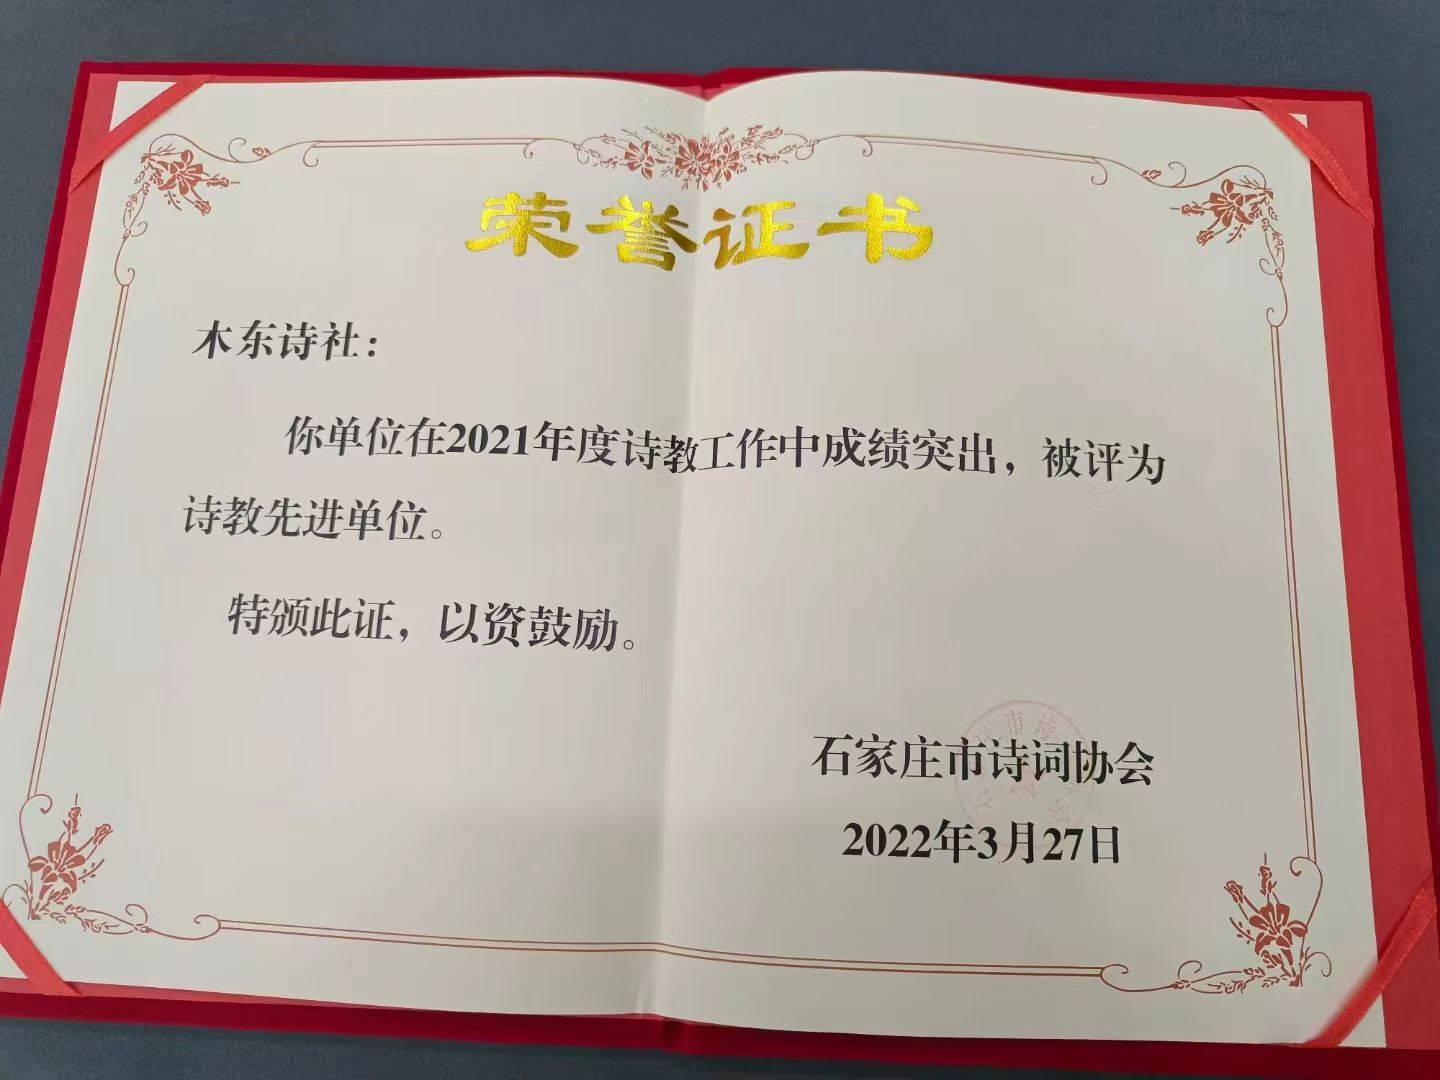 荣誉证书
木东诗社：
你单位在2021年度诗教工作中成绩突出，被评为
诗教先进单位。
特颁此证，以资鼓励。
石家庄市诗词协会
2022年3月27日